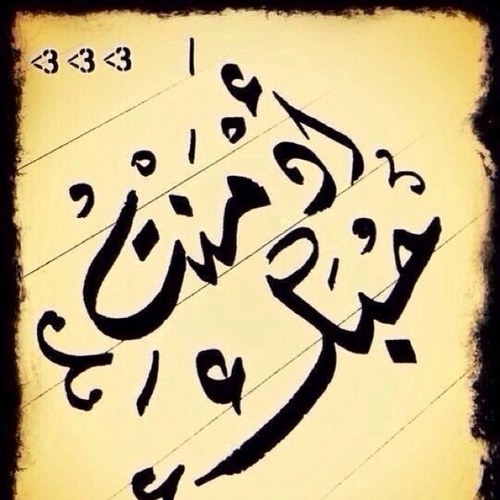 <3 <3 <3
أدمنت
حبك